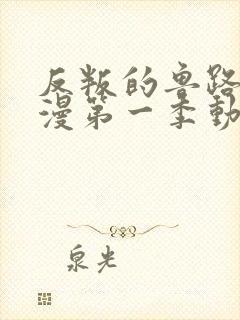 反叛的鲁路
漫第一季動
泉光